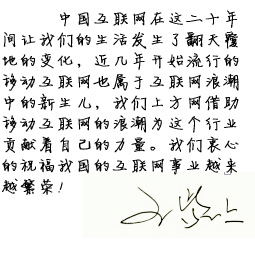 中国互联网在这二十年
间让我们的生活发生了翻天覆
地的变化，近几年开始流行的
移动互联网也属于互联网浪潮
中的新生儿，我们上方网借助
移动互联网的浪潮为这个行业
贡献着自己的力量。我们衷心
的祝福我国的互联网事业越来
越繁荣！